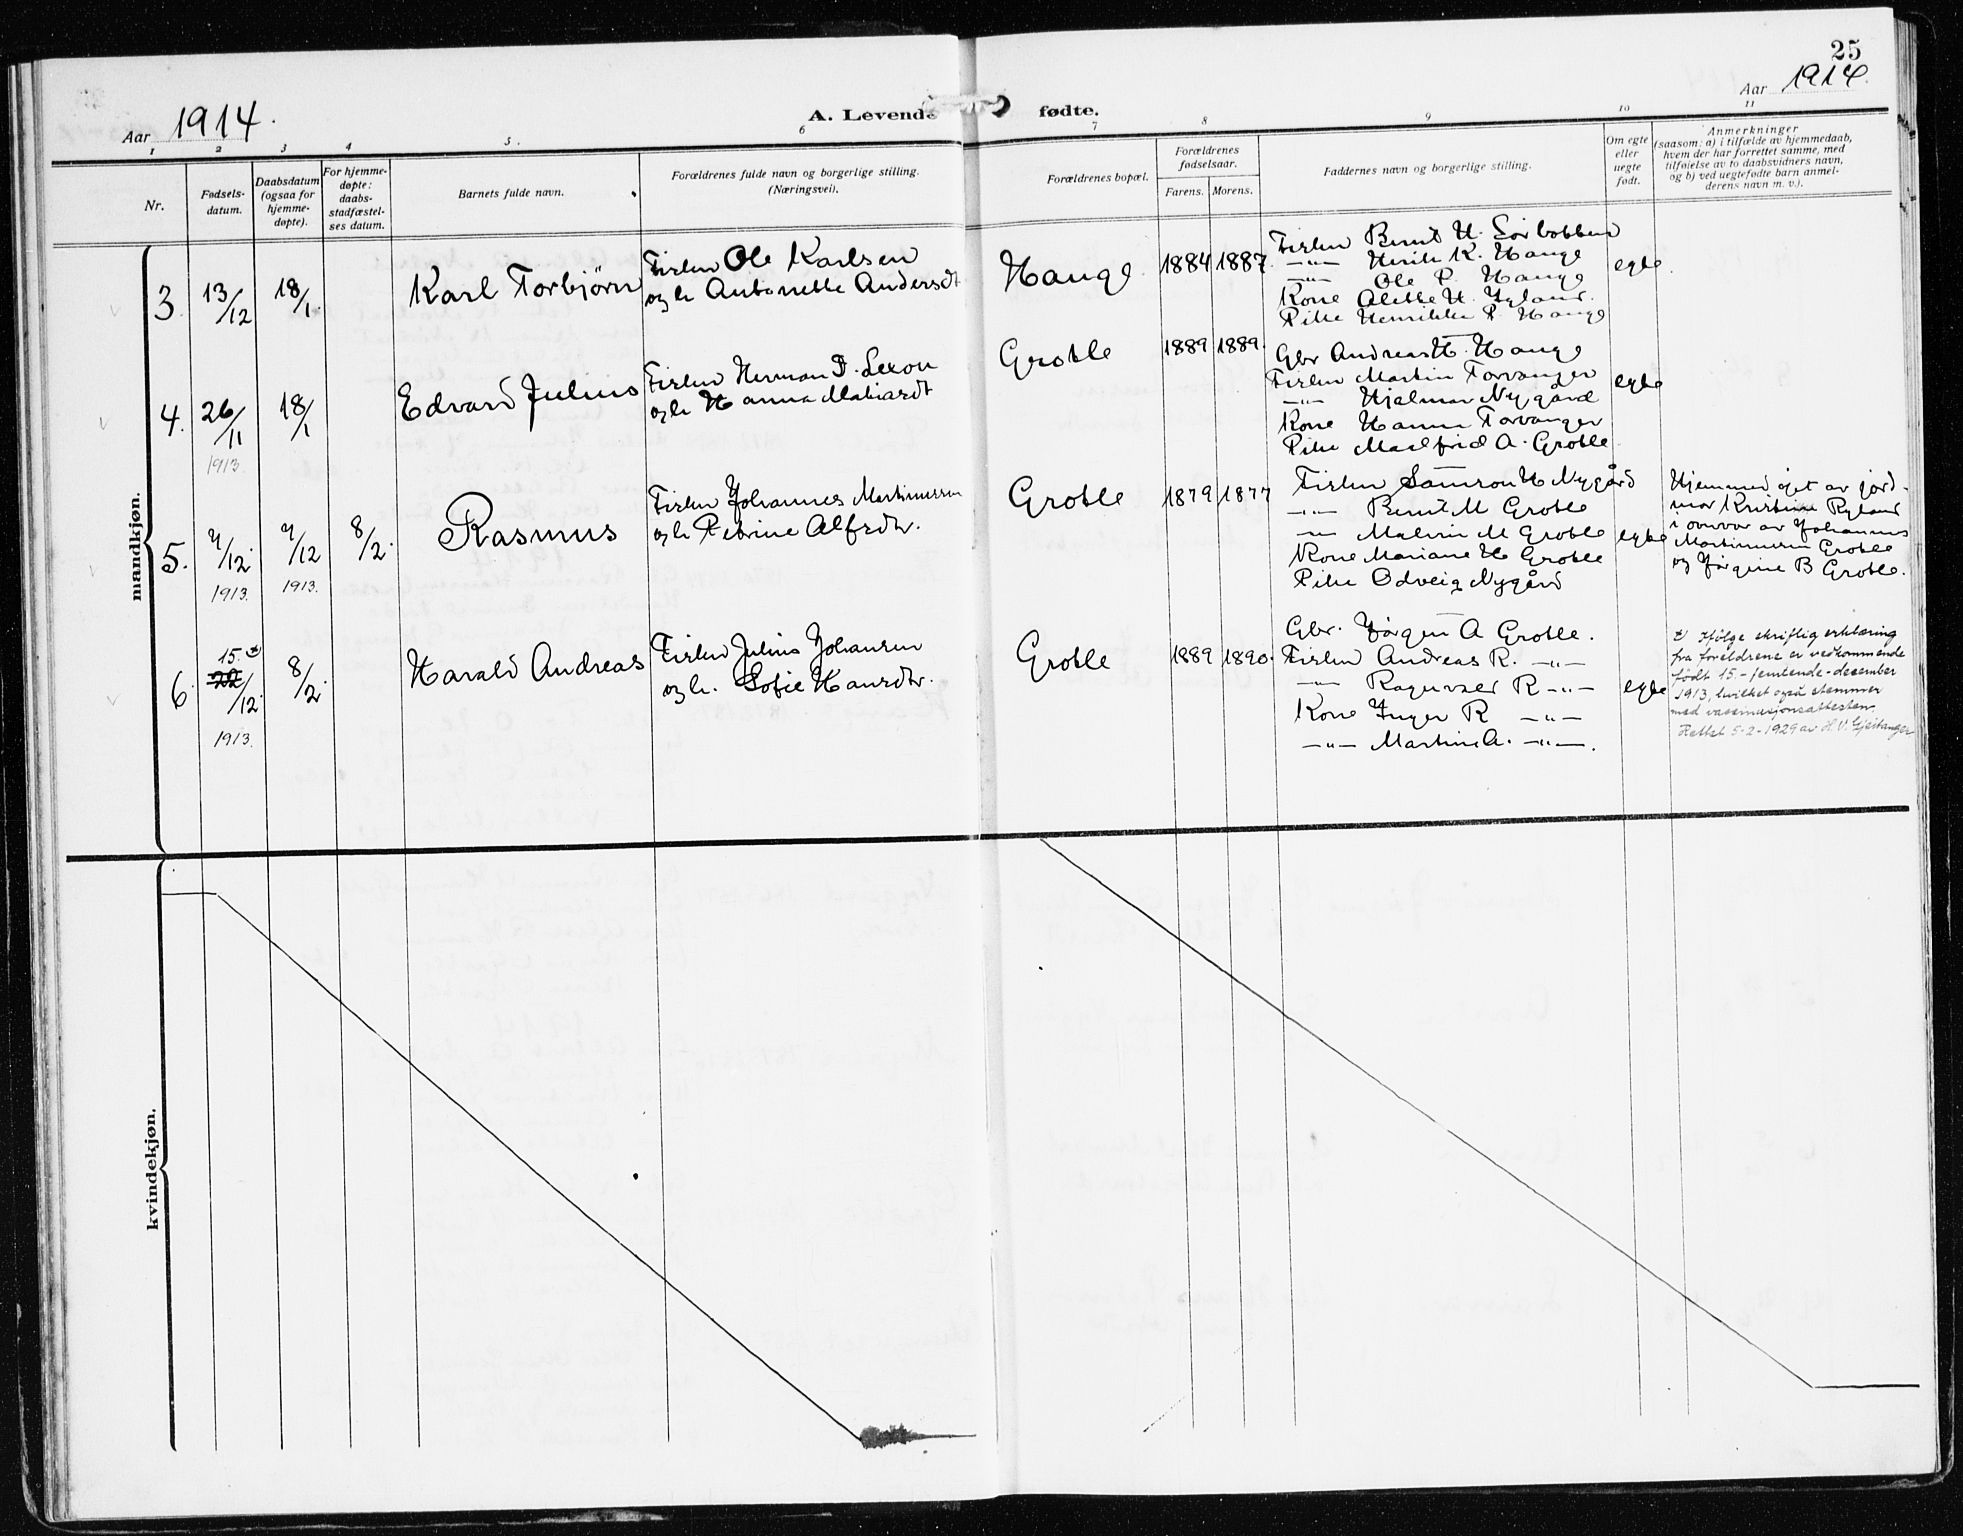 25
Aar 1914.
A. Levende fødte.
Aar 1914.
1 2 3 4 5. 6 7 8 9 10 11
Nr.
Fødsels-
datum.
Daabsdatum
(ogsaa for
hjemme-
døpte).
For hjemme-
døpte:
daabs-
stadfæstel-
ses datum.
Barnets fulde navn.
Forældrenes fulde navn og borgerlige stilling.
(Næringsvei).
Forældrenes bopæl.
Forældrenes
fødselsaar.
Farens. Morens.
Faddernes navn og borgerlige stilling.
Om egte
eller
uegte
født.
Anmerkninger
(saasom: a) i tilfælde av hjemmedaab,
hvem der har forrettet samme, med
tilføielse av to daabsvidners navn,
og b) ved uegtefødte barn anmel-
derens navn m. v.).
mandkjøn.
3. 13/12 18/1. Karl Torbjørn
Fisker Ole Karlsen
og h. Antonette Andersdt
Hauge 1884 1887.
Fisker Bernt H.
-"- Henrik K. Hauge
-"- Ole P. Hauge
Kone Alette H.
Pike Henrikke P. Hauge
egte
4. 26/11 18/1
1913.
Edvard Julius
Fisker Herman
og h. Hanna
Grotle 1889 1889.
Gbr Andreas H. Hauge
Fisker Martin Torvanger
-"- Hjalmar Nygård
Kone Hanna Torvanger
Pike Maalfrid A. Grotle
egte
5. 7/12. 7/12 8/2.
1913. 1913.
Rasmus
Fisker Johannes Martinussen
og h. Petrine Alfsdtr.
Grotle 1879 1877
Fisker Samson H Nygård
-"- Bernt M Grotle
-"- Malvin M Grotle
Kone Mariane H Grotle
Pike Odveig Nygård
egte
Hjemmedøpt av jord-
mor Kristine Ryland
i overvær av Johannes
Martinussen Grotle
og Jørgine B Grotle.
6. 15. ±
22/12. 8/2.
1913.
Harald Andreas
Fisker Julius Johansen
og h. Sofie Hansdtr.
Grotle 1889 1890.
Gbr. Jørgen A Grotle.
Fisker Andreas R. -"-
-"- Ragnvald R -"-
Kone Inger R -"-
-"- Martine A. -"-.
egte
± Ifølge skriflig erklæring
fra foreldrene er vedkommende
født 15. - femtende - desember
1913, hvilket også stemmer
med vaksinasjonsattesten.
Rettet 5-2-1929 av H.V. Gjeitanger
kvindekjøn.